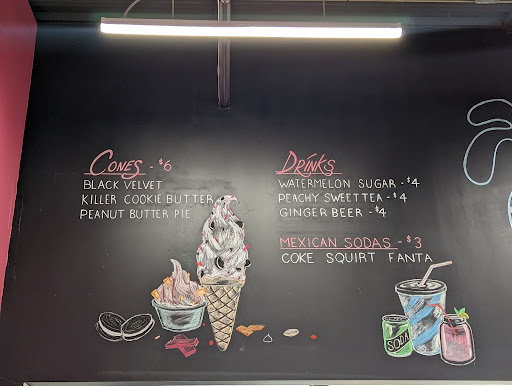 CONES - $6
BLACK VELVET
KILLER COOKIE BUTTER
PEANUT BUTTER PIE
DRINKS
WATERMELON SUGAR - $4
PEACHY SWEET TEA - $4
GINGER BEER - $4
MEXICAN SODAS - $3
COKE SQUIRT FANTA
SODA